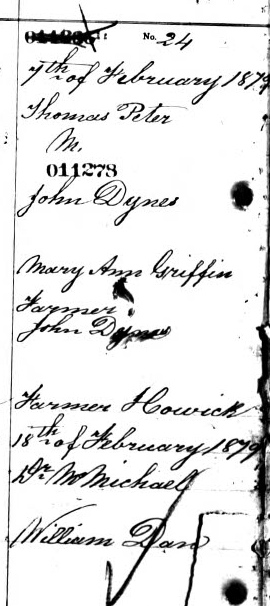 No. 24
7th of February 1879
Thomas Peter
M.
011278
John Dynes
Mary Ann Griffin
Farmer
John Dynes
Farmer Howick
18th of February 1879
Dr. McMichael
William Dan